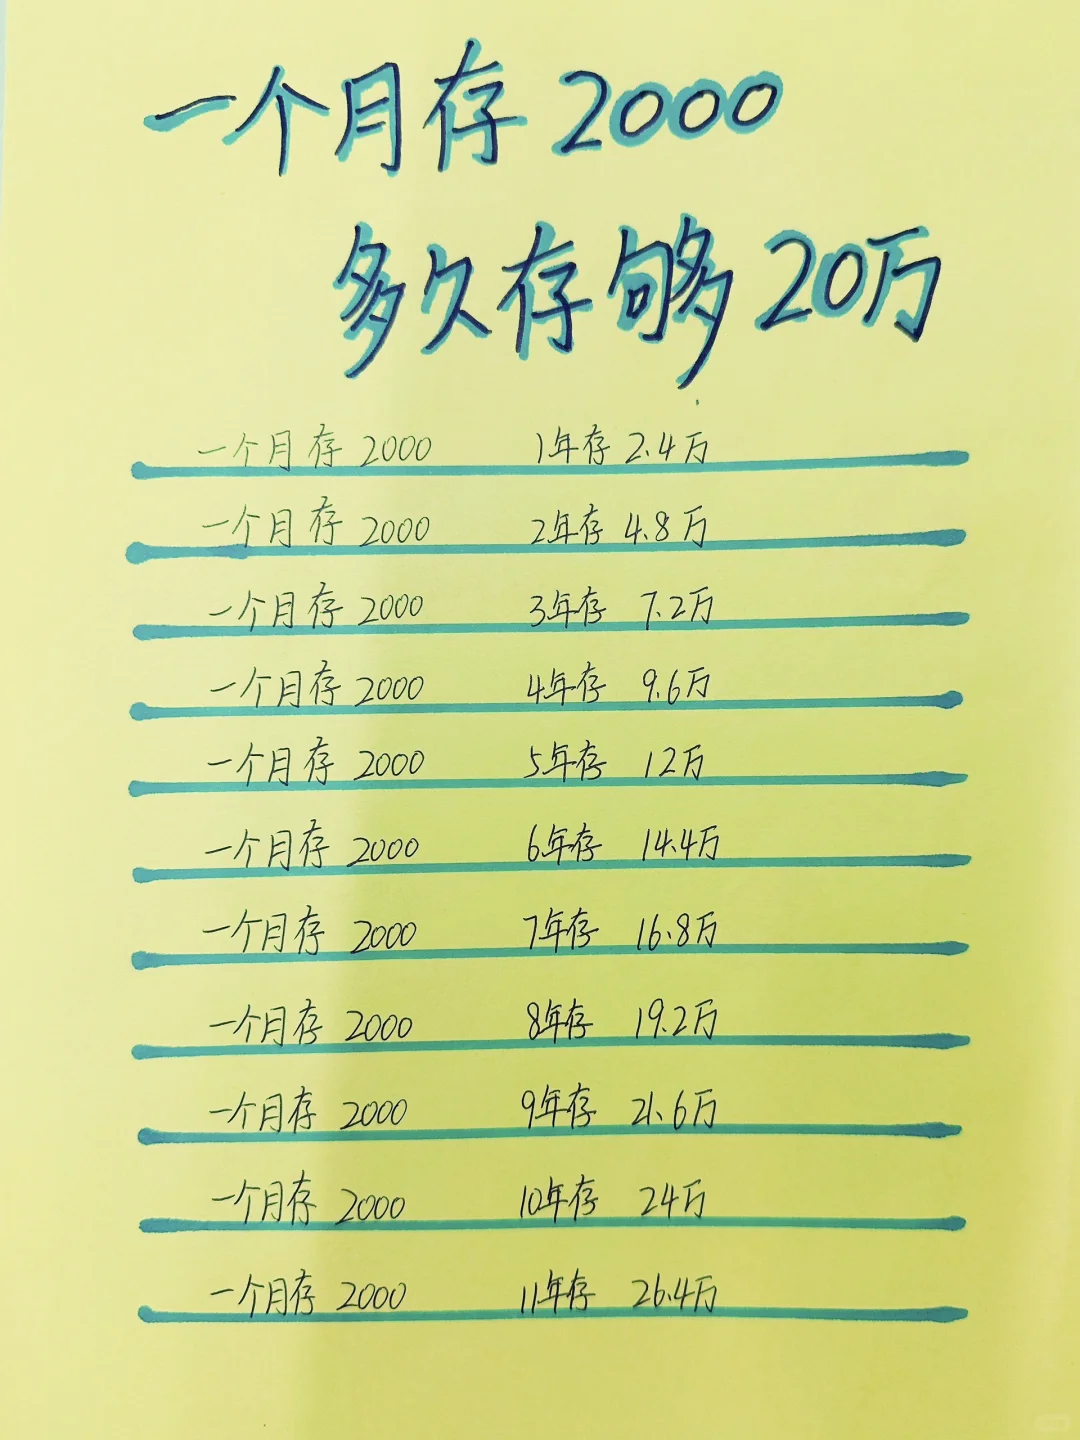 一个月存2000
多久存够20万
一个月存 2000 1年存 2.4万
一个月存 2000 2年存 4.8万
一个月存 2000 3年存 7.2万
一个月存 2000 4年存 9.6万
一个月存 2000 5年存 12万
一个月存 2000 6年存 14.4万
一个月存 2000 7年存 16.8万
一个月存 2000 8年存 19.2万
一个月存 2000 9年存 21.6万
一个月存 2000 10年存 24万
一个月存 2000 11年存 26.4万